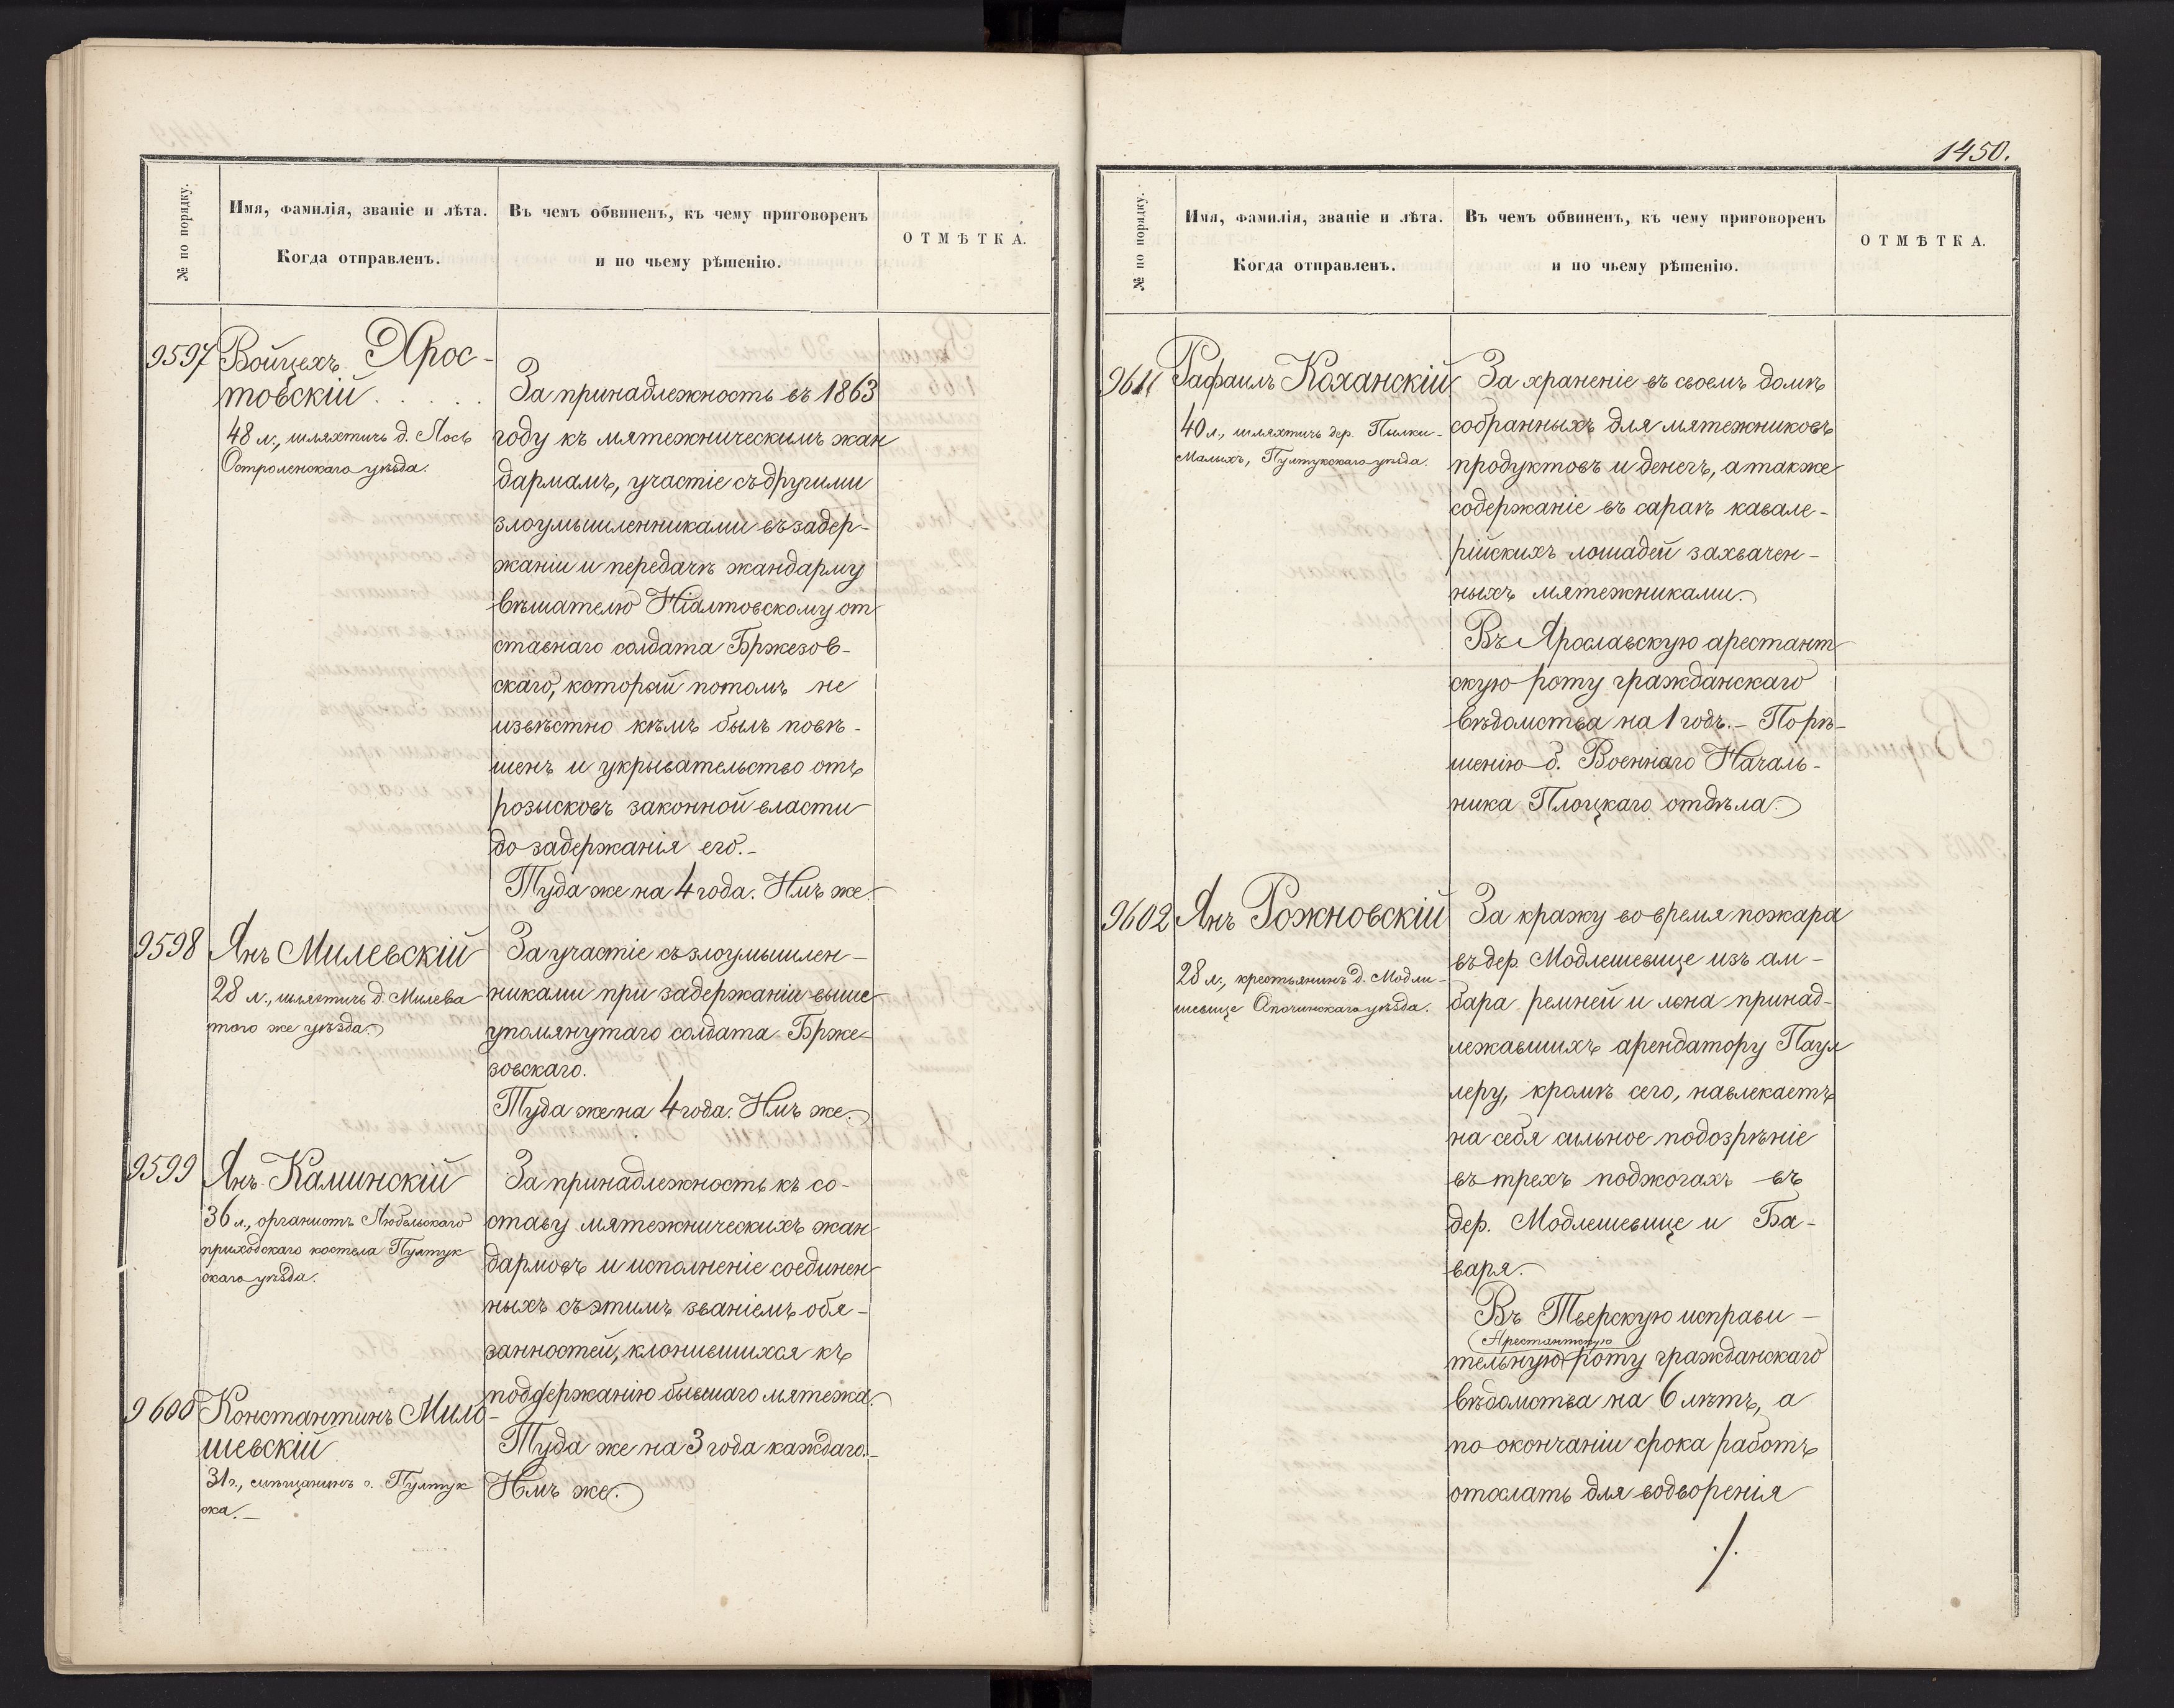 № по порядку.
Имя, фамилія, званіе и лѣта.
Когда отправленъ.
Въ чемъ обвиненъ, къ чему приговоренъ
и по чьему рѣшенію.
ОТМѢТКА.
9597 Войцехъ Хрос-
товскій . . . . .
48 л., шляхтичь д. Лось
Остроленскаго уѣзда.
За принадлежность въ 1863
году къ мятежническимъ жан
дармамъ, участіе съ другими
злоумышленниками въ задер-
жаніи и передачѣ жандарму
вѣшателю Ніалтовскому от
ставнаго солдата Бржезов-
скаго, который потомъ не
извѣстно кѣмъ былъ повѣ-
шенъ и укрывательство отъ
розысковъ законной власти
до задержанія его.-
Туда же на 4 года. Имъ же.
9598 Янъ Милевскій
28 л., шляхтичь д. Милева
того же уѣзда.
За участіе съ злоумышлен-
никами при задержаніи выше
упомянутаго солдата Брже-
зовскаго.
Туда же на 4 года. Имъ же.
9599 Янъ Каминскій
36 л., органистъ Любельскаго
приходскаго костела Пултук
скаго уѣзда.
За принадлежность къ со-
ставу мятежническихъ жан
дармовъ и исполненіе соединен
ныхъ съ этимъ званіемъ обя-
занностей, клонившихся къ
поддержанію бывшаго мятежа.
9600 Константинъ Мило-
шевскій
31 г., мѣщанинъ г. Пултук
ска.-
Туда же на 3 года каждаго.-
Имъ же.
1450.
№ по порядку.
Имя, фамилія, званіе и лѣта.
Когда отправленъ.
Въ чемъ обвиненъ, къ чему приговоренъ
и по чьему рѣшенію.
ОТМѢТКА.
9611 Рафаилъ Коханскій
40 л., шляхтичь дер. Пылки-
Малыхъ, Пултукскаго уѣзда.
За храненіе въ своемъ домѣ
собранныхъ для мятежниковъ
продуктовъ и денегъ, а также
содержаніе въ сараѣ кавале-
рійскихъ лошадей захвачен-
ныхъ мятежниками.
Въ Ярославскую арестант
скую роту гражданскаго
вѣдомства на 1 годъ.- По рѣ-
шенію б. Военнаго Началь-
ника Плоцкаго отдѣла.
9602 Янъ Рожновскій
28 л., крестьянинъ д. Модли-
шевице Опочинскаго уѣзда.
За кражу во время пожара
въ дер. Модлешевице изъ ам-
бара ремней и льна принад-
лежавшихъ арендатору Паул
леру, кромѣ сего, навлекаетъ
на себя сильное подозрѣніе
въ трехъ поджогахъ въ
дер. Модлешевице и Ба-
варя.
Въ Тверскую исправи-
Арестантскую
тельную роту гражданскаго
вѣдомства на 6 лѣтъ, а
по окончаніи срока работъ
отослать для водворенія
./.